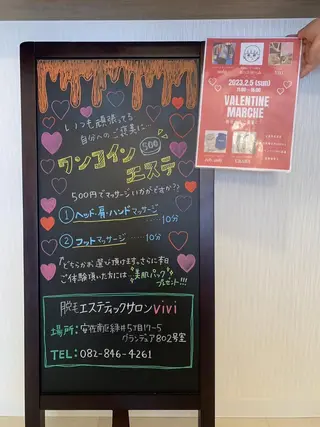 いつも頑張ってる
自分へのご褒美に…
ワンコイン
500
エステ
500円でマッサージいかがですか??
① ヘッド・肩・ハンドマッサージ
……10分
② フットマッサージ ……10分
どちらかお選び頂けます。さらに本日
ご体験頂いた方には美肌パック
プレゼント!!!
脱毛エステティックサロンvivi
場所:安佐南区緑井5丁目17-5
グランディア802号室
TEL:082-846-4261
2023.2.5 (sun)
11:00 - 16:00
VALENTINE
MARCHE